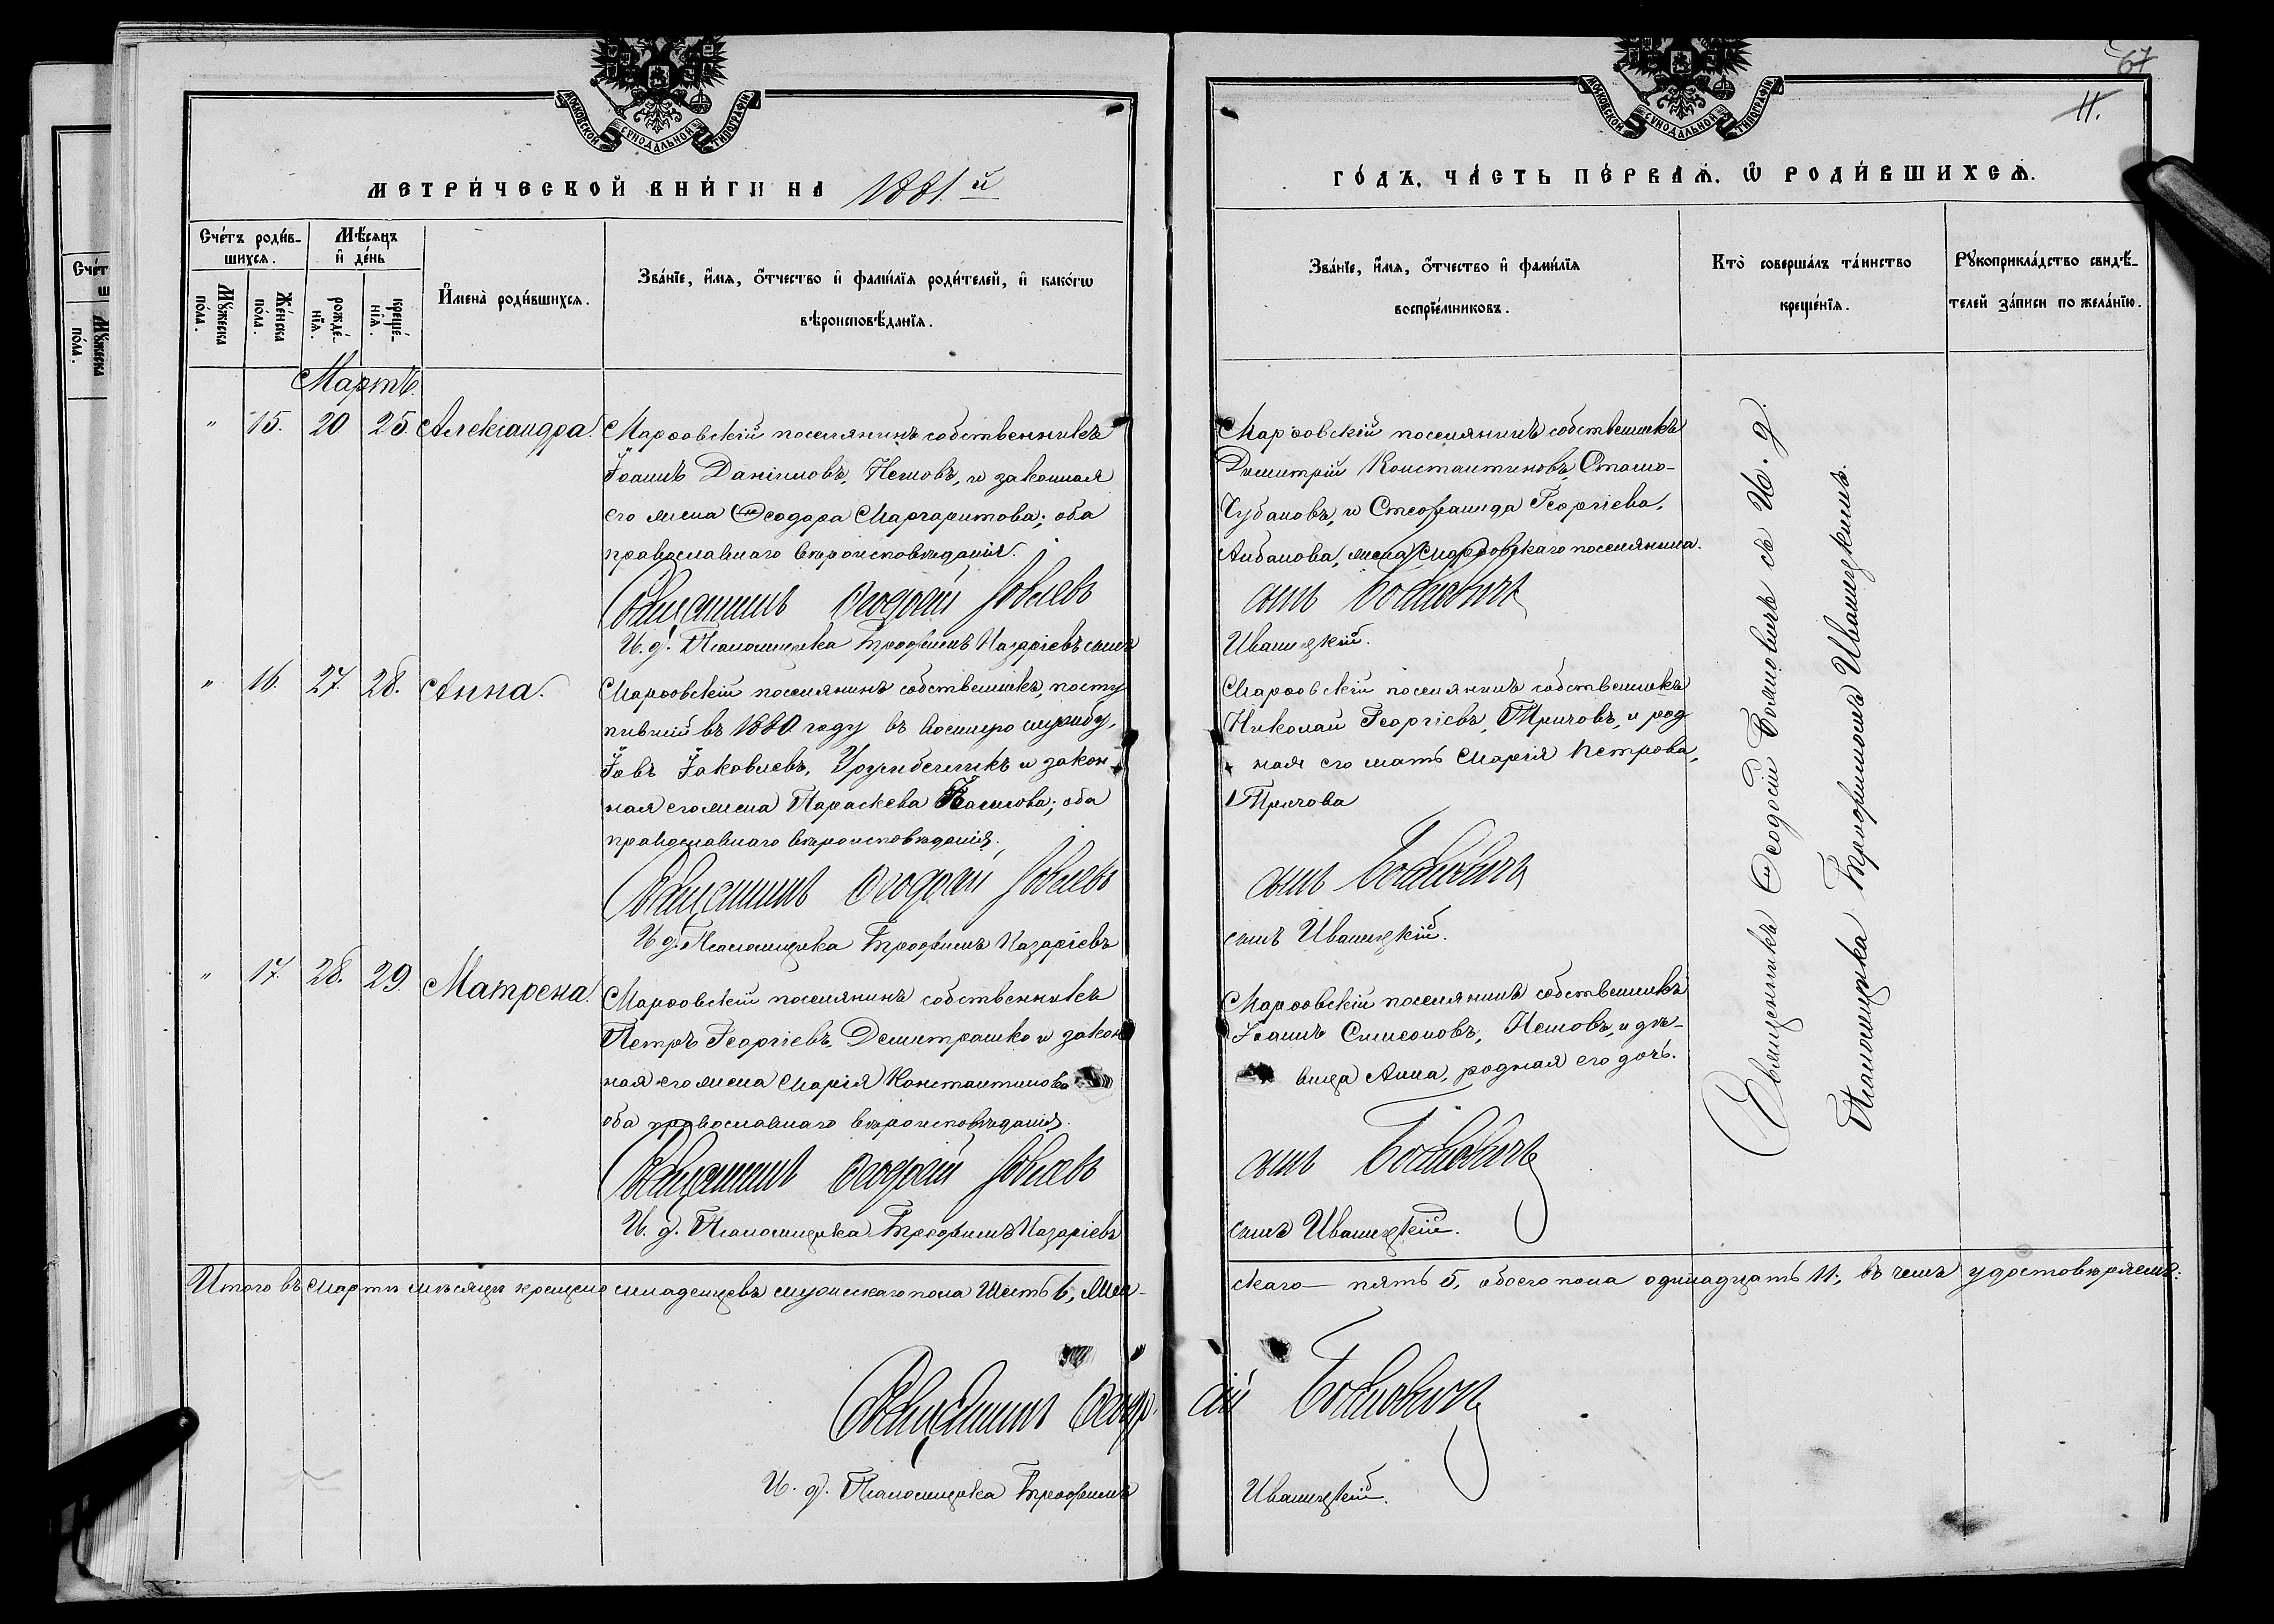 МОСКОВСКОЙ СѴНОДАЛЬНОЙ ТИПОГРАФІИ
МЕТРИ́ЧЕСКОЙ КНИ́ГИ НА 1881й
Сче́тъ роди́в-
шихся.
Мѣ́сяцъ
и҆ де́нь
Мꙋ́жеска
по́ла.
Же́нска
по́ла.
рожде́-
нїя.
креще́-
нїя.
И҆мена̀ роди́вшихся.
Зва́нїе, и҆́мя, ѻ҆́тчество и҆ фамѝлїя роди́телей, и҆ како́гѡ
вѣроисповѣ́данїя.
Мартъ.
" 15. 20 25. Александра.
Марѳовскій поселянинъ собственникъ
Іоаннъ Даніиловъ, Нешовъ, и законная
его жена Ѳеодора Маргаритова; оба
православнаго вѣроисповѣданія.
Священникъ Ѳеодосій
И. д. Псаломщика Трофимъ Назаріевъ сынъ
" 16. 27. 28. Анна.
Марѳовскій поселянинъ собственникъ, посту
пившій въ 1880 году въ военную службу,
Іовъ Іаковлевъ, и закон
ная его жена Параскева оба
православнаго вѣроисповѣданія.
Священникъ Ѳеодосій
И д. Псаломщика Трофимъ Назаріевъ
" 17. 28. 29. Матрена.
Марѳовскій поселянинъ собственникъ
Петръ Георгіевъ, Демитрашко и закон
ная его жена Марія Константинова
оба православнаго вѣроисповѣданія.
Священникъ Ѳеодосій
И. д. Псаломщика Трофимъ Назаріевъ
Итого въ Мартѣ мѣсяцѣ крещено младенцевъ мужескаго пола шесть 6, жен-
Священникъ Ѳеодо
И. д. Псаломщика Трофимъ
67
11.
МОСКОВСКОЙ СѴНОДАЛЬНОЙ ТИПОГРАФІИ
ГО́ДЪ, ЧА́СТЬ ПЕ́РВАѦ, Ѡ҆ РОДИ́ВШИХСѦ.
Зва́нїе, и҆́мя, ѻ҆́тчество и҆ фамѝлїя
воспрїе́мниковъ.
Кто̀ соверша́лъ та́инство
креще́нїя.
Рꙋкоприкла́дство свидѣ́-
телей за́писи по жела́нїю.
Марѳовскій поселянинъ собственникъ
Димитрій Константиновъ,
Чубановъ, и Стефанида Георгіева,
жена Марѳовскаго поселянина.
сынъ
Иваницкій.
Марѳовскій поселянинъ собственникъ
Николай Георгіевъ, и род
ная его мать Марія Петрова,
сынъ
сынъ Иваницкій.
Марѳовскій поселянинъ собственникъ
Іоаннъ Симеоновъ, Нешовъ, и дѣ-
вица Анна, родная его дочь.
сынъ
сынъ Иваницкій.
Священникъ Ѳеодосій съ И. д.
Псаломщика Трофимомъ Иваницкимъ.
скаго — пять 5, обоего пола одинадцать 11; въ чемъ удостовѣряемъ:
сій
Иваницкій.